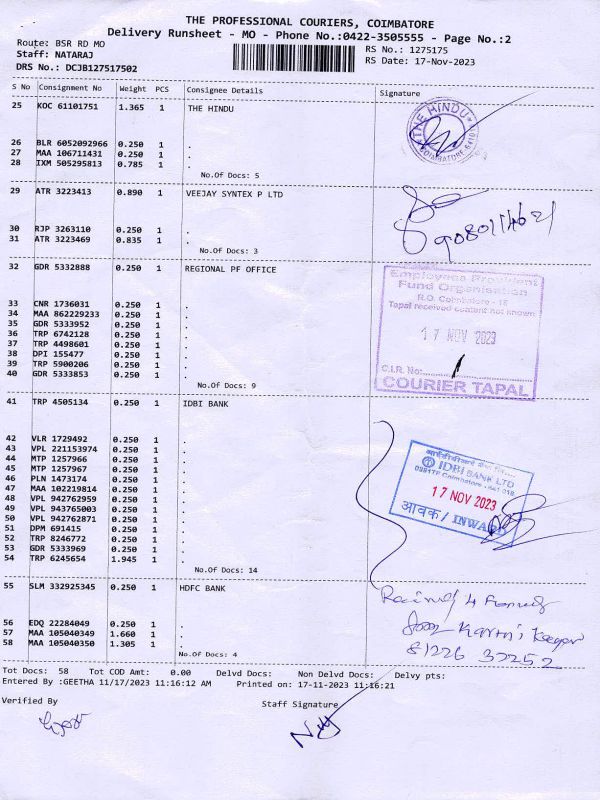 THE PROFESSIONAL COURIERS, COIMBATORE
Delivery Runsheet - MO - Phone No.:0422-3505555 - Page No.:2
Route: BSR RD MO RS No.: 1275175
Staff: NATARAJ RS Date: 17-Nov-2023
DRS No.: DCJB127517502
S No Consignment No Weight PCS Consignee Details Signature
25 KOC 61101751 1.365 1 THE HINDU
THE HINDU
COIMBATORE
26 BLR 6052092966 0.250 1 .
27 MAA 106711431 0.250 1 .
28 IXM 505295813 0.785 1 .
No.Of Docs: 5
29 ATR 3223413 0.890 1 VEEJAY SYNTEX P LTD
30 RJP 3263110 0.250 1 .
31 ATR 3223469 0.835 1 .
No.Of Docs: 3
32 GDR 5332888 0.250 1 REGIONAL PF OFFICE
Employees Provident
Fund Organisation
R.O. Coimbatore - 18
Tapal received content not known
17 NOV 2023
C.I.R. No:
COURIER TAPAL
33 CNR 1736031 0.250 1 .
34 MAA 862229233 0.250 1 .
35 GDR 5333952 0.250 1 .
36 TRP 6742128 0.250 1 .
37 TRP 4498601 0.250 1 .
38 DPI 155477 0.250 1 .
39 TRP 5900206 0.250 1 .
40 GDR 5333853 0.250 1 .
No.Of Docs: 9
41 TRP 4505134 0.250 1 IDBI BANK
IDBI BANK LTD
17 NOV 2023
आवक / INWARD
42 VLR 1729492 0.250 1 .
43 VPL 221153974 0.250 1 .
44 MTP 1257966 0.250 1 .
45 MTP 1257967 0.250 1 .
46 PLN 1473174 0.250 1 .
47 MAA 102219814 0.250 1 .
48 VPL 942762959 0.250 1 .
49 VPL 943765003 0.250 1 .
50 VPL 942762871 0.250 1 .
51 DPM 691415 0.250 1 .
52 TRP 8246772 0.250 1 .
53 GDR 5333969 0.250 1 .
54 TRP 6245654 1.945 1 .
No.Of Docs: 14
55 SLM 332925345 0.250 1 HDFC BANK
81226 37252
56 EDQ 22284049 0.250 1 .
57 MAA 105040349 1.660 1 .
58 MAA 105040350 1.305 1 .
No.Of Docs: 4
Tot Docs: 58 Tot COD Amt: 0.00 Delvd Docs: Non Delvd Docs: Delvy pts:
Entered By :GEETHA 11/17/2023 11:16:12 AM Printed on: 17-11-2023 11:16:21
Verified By Staff Signature